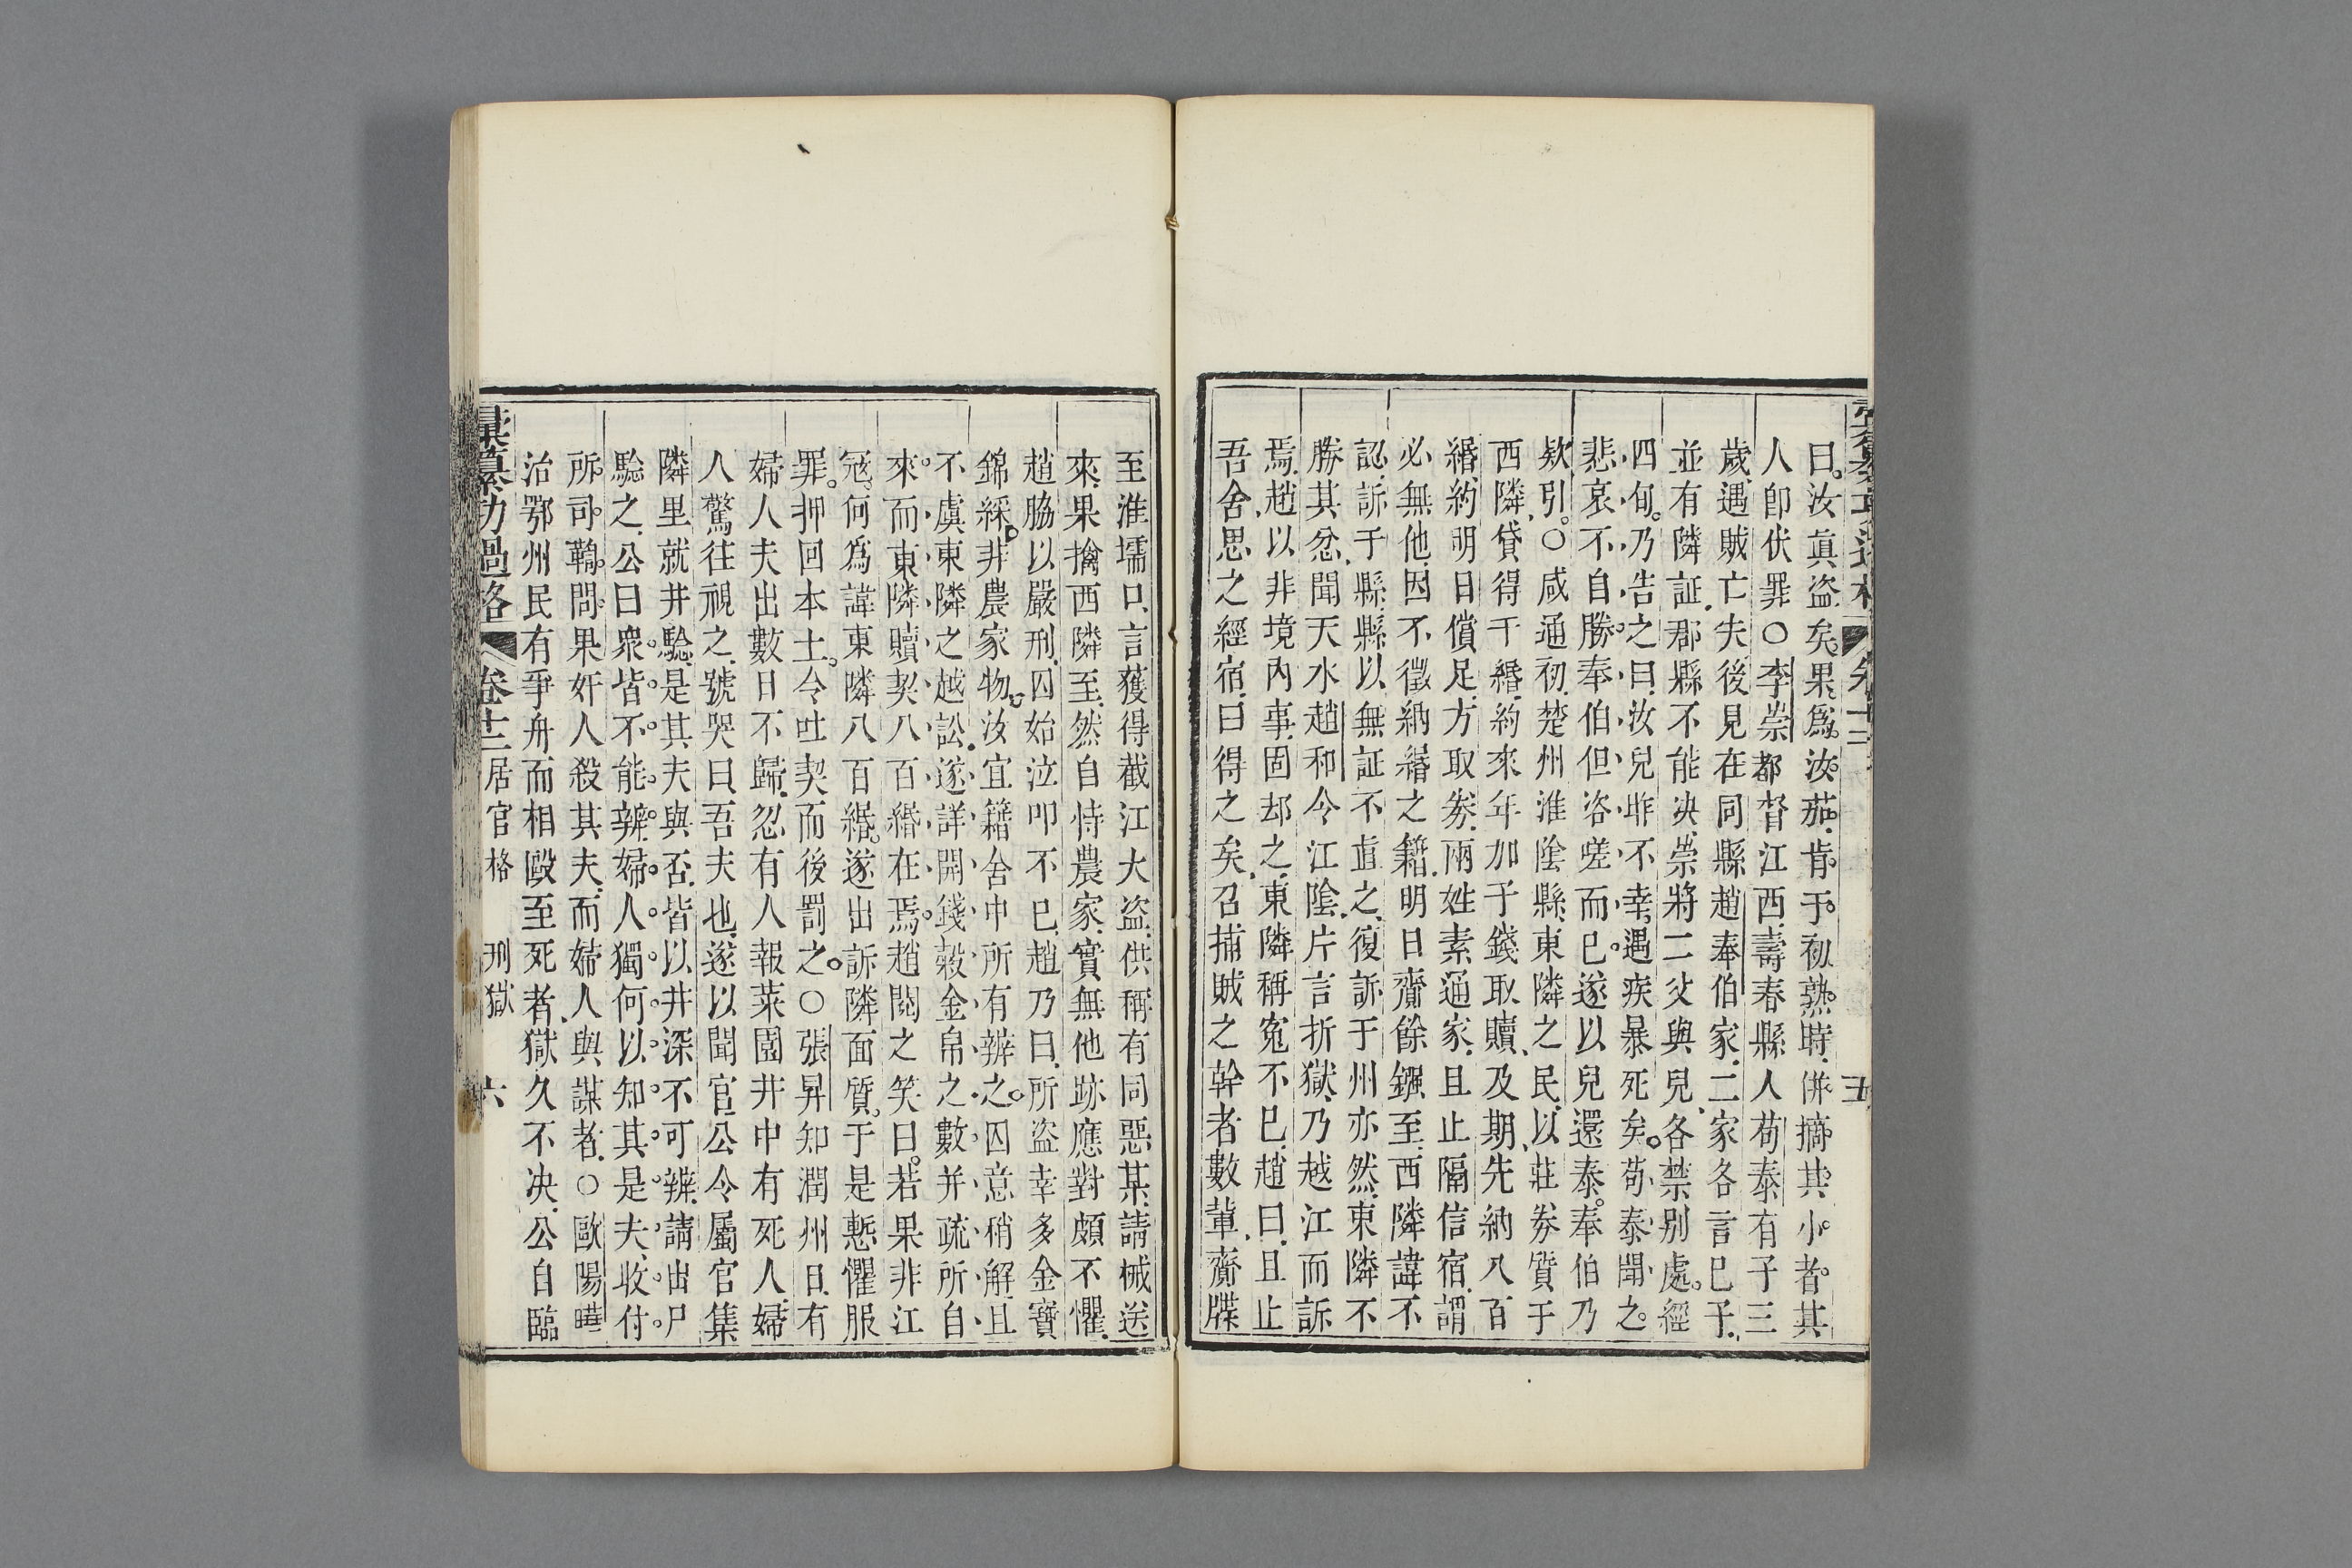 曰。汝眞盜矣。果爲汝茄。肯于初熟時。併摘其小者。其
人卽伏罪○李崇都督江西。壽春縣人荀泰有子三
歲。遇賊亡失。後見在同縣趙奉伯家。二家各言已子。
並有隣証。郡縣不能决。崇將二父與兒各禁別處。經
四旬。乃告之曰。汝兒昨不幸遇疾暴死矣。荀泰聞之。
悲哀不自勝。奉伯但咨嗟而已。遂以兒還泰。奉伯乃
欵引。○咸通初。楚州淮陰縣東隣之民。以莊劵質于
西隣。貸得千緡。約來年加子錢取贖。及期。先納八百
緡。約明日償足。方取劵。兩姓素通家。且止隔信宿。謂
必無他。因不徵納緡之籍。明日齎餘鏹至。西隣諱不
認。訴于縣。縣以無証不直之。復訴于州亦然。東隣不
勝其忿。聞天水趙和令江陰。片言折獄。乃越江而訴
焉。趙以非境內事。固却之。東隣稱寃不已。趙曰。且止
吾舍。思之經宿。曰得之矣。召捕賊之幹者數輩。齎牒
五
至淮壖口。言獲得截江大盜。供稱有同惡某。請械送
來。果擒西隣至。然自恃農家。實無他跡。應對頗不懼。
趙脇以嚴刑。囚始泣叩不已。趙乃曰。所盜幸多金寶
錦綵。非農家物。汝宜籍舍中所有辨之。囚意稍解。且
不虞東隣之越訟。遂詳開錢穀金帛之數。并疏所自
來。而東隣贖契八百緡在焉。趙閱之笑曰。若果非江
寇。何爲諱東隣八百緡。遂出訴隣面質。于是慙懼服
罪。押回本土。令吐契而後罰之。○張昇知潤州日。有
婦人夫出數日不歸。忽有人報菜園井中有死人。婦
人驚往視之。號哭曰。吾夫也。遂以聞官。公令屬官集
隣里就井驗是其夫與否。皆以井深不可辨。請出尸
驗之。公曰。衆皆不能辨。婦人獨何以知其是夫。收付
所司鞫問。果奸人殺其夫。而婦人與謀者。○歐陽曄
治鄂州。民有爭舟而相毆至死者。獄久不决。公自臨
彙纂功過格 卷十三 居官格 刑獄 六